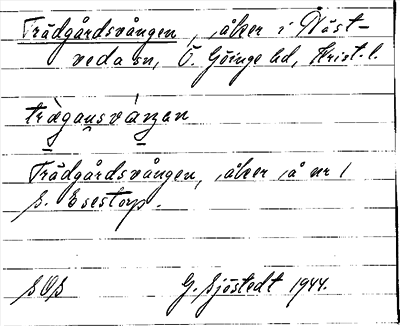 Trädgårdsvången, åker i Näst-
veda sn, Ö. Göinge hd, Krist. l.
trä̀gansvánən
Trädgårdsvången, åker å nr 1
S. Esestorp.
SOS G. Sjöstedt 1944.